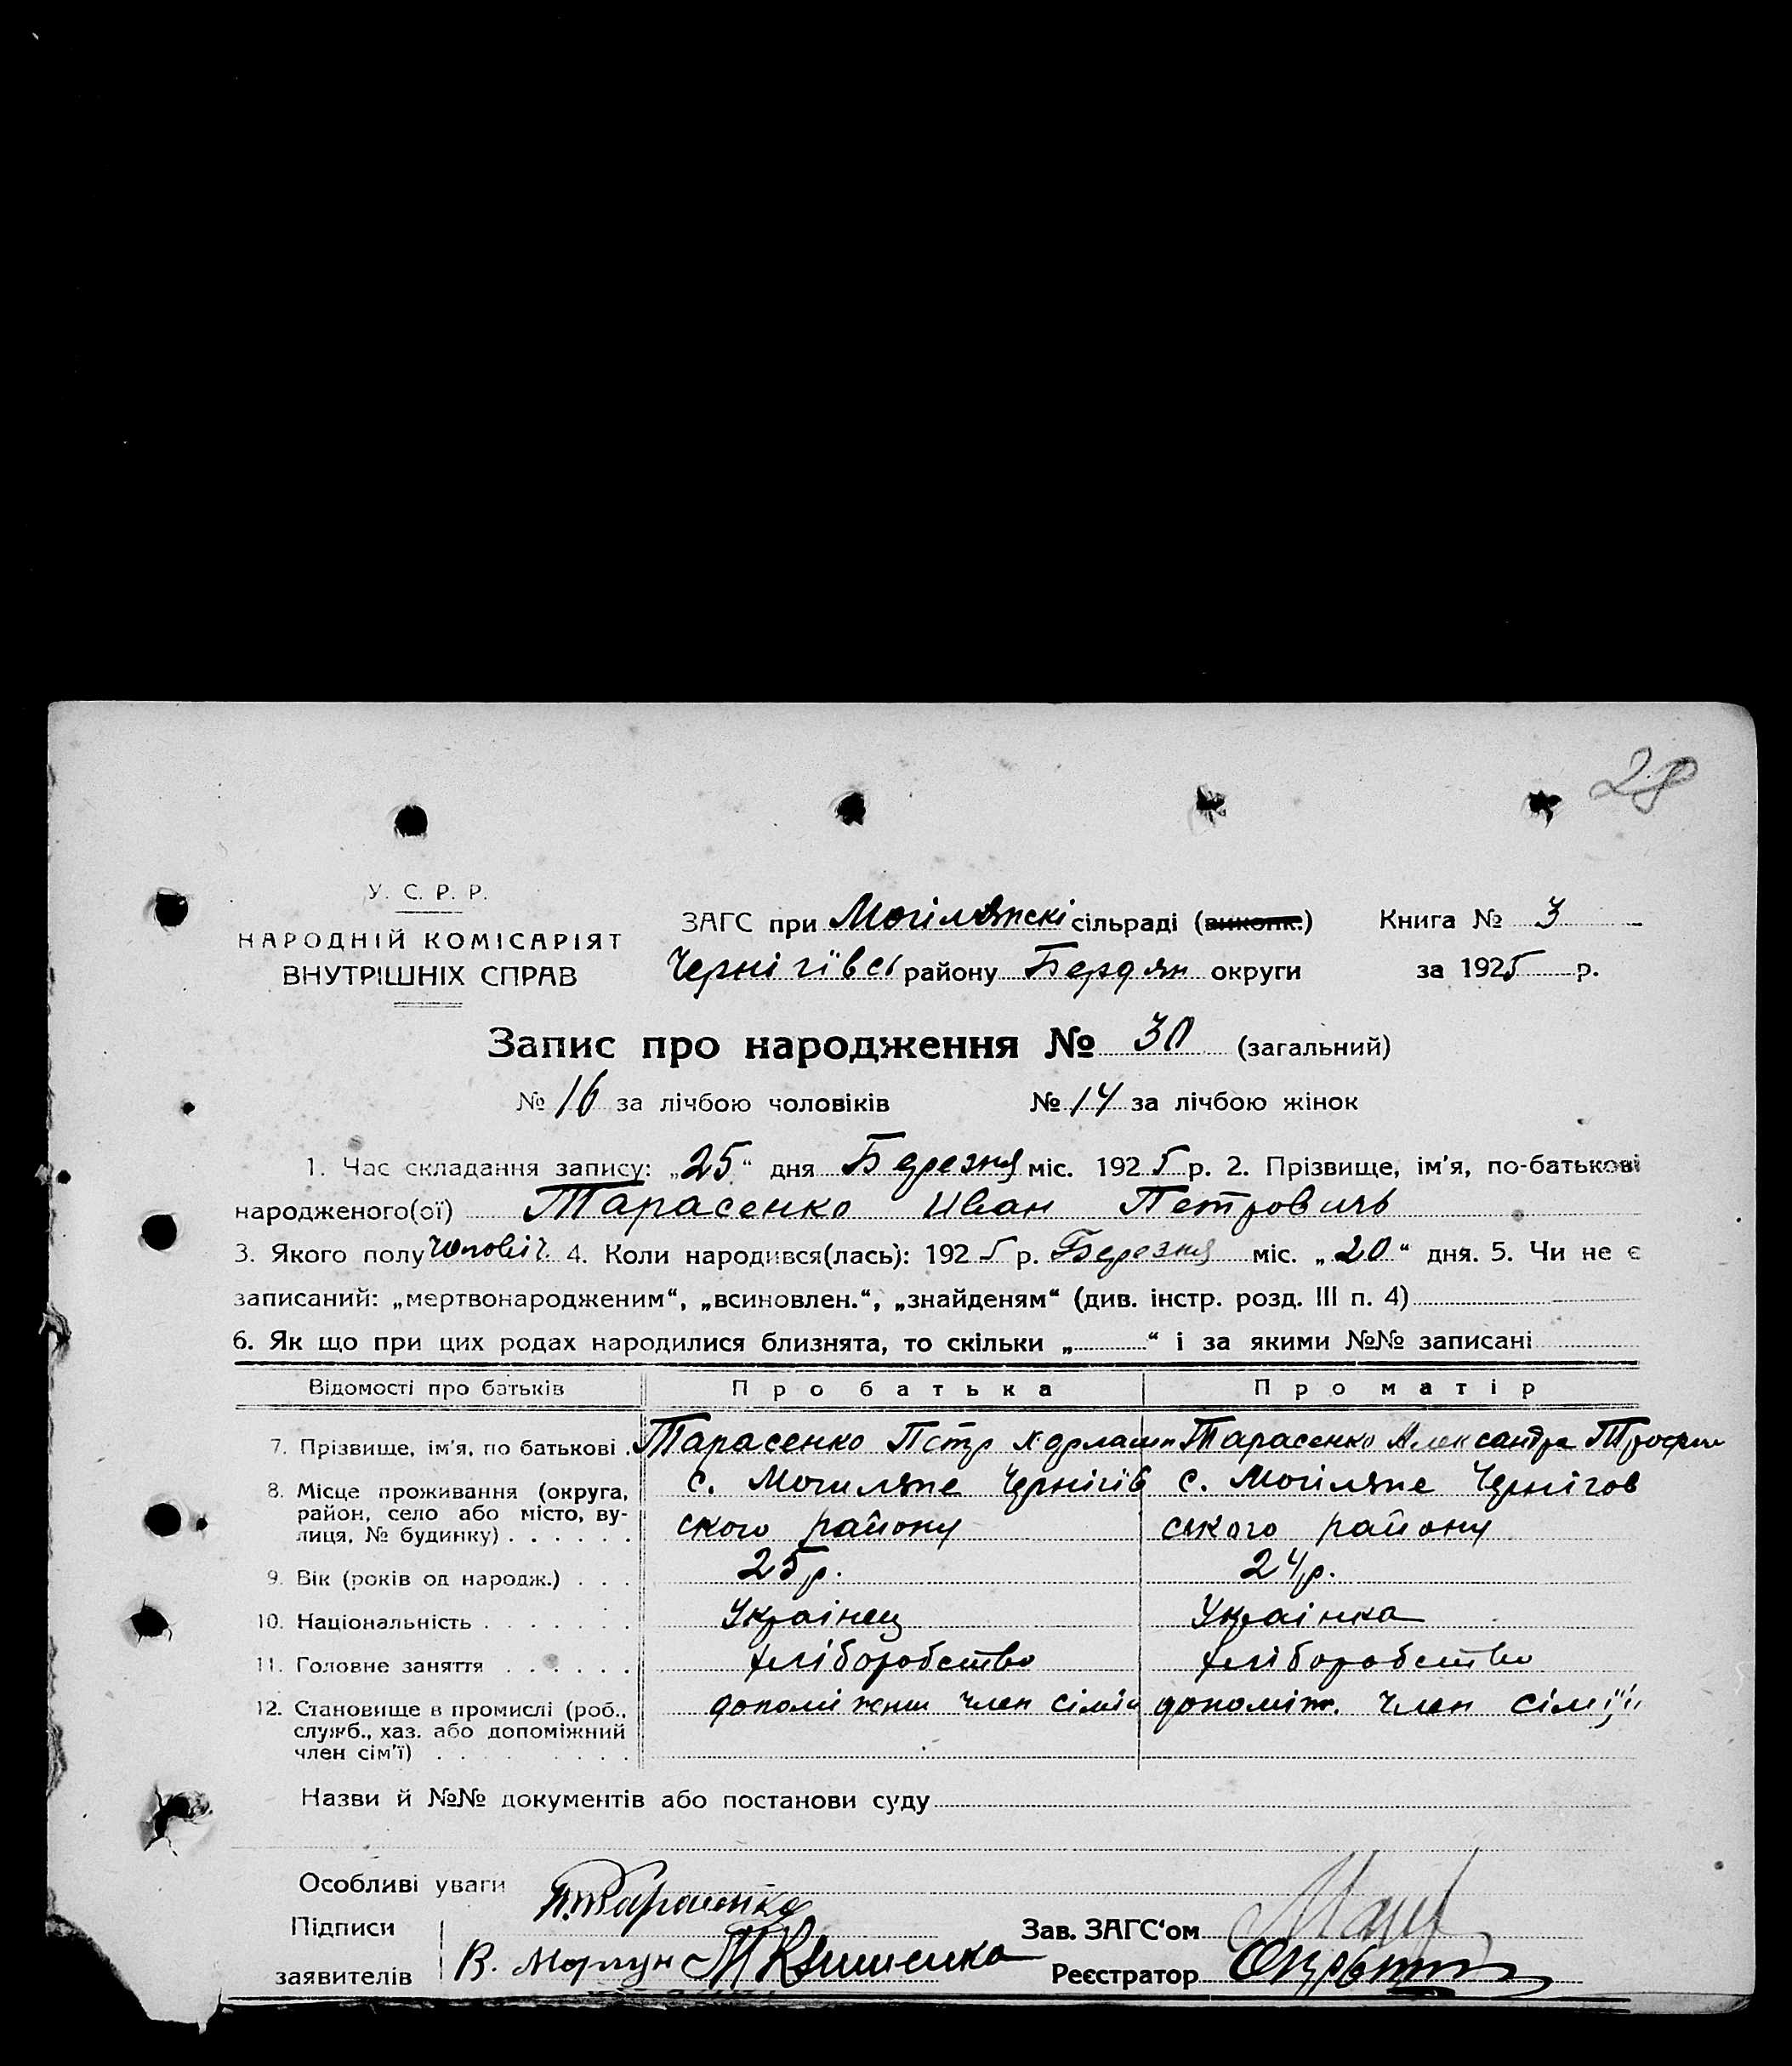 28
У. С. Р. Р.
НАРОДНІЙ КОМІСАРІЯТ
ВНУТРІШНІХ СПРАВ
ЗАГС при Могілянскі сільраді (виконк.) Книга № 3
Чернігівсь району Бердян округи за 1925 р.
Запис про народження № 30 (загальний)
№ 16 за лічбою чоловіків № 14 за лічбою жінок
1. Час складання запису: „25“ дня Березня міс. 1925 р. 2. Прізвище, ім'я, по-батькові
народженого(ої) Тарасенко Иван Петровичь
3. Якого полу чоловіч. 4. Коли народився(лась): 1925 р. Березня міс. „20“ дня. 5. Чи не є
записаний: „мертвонародженим“, „всиновлен.“, „знайденям“ (див. інстр. розд. III п. 4)
6. Як що при цих родах народилися близнята, то скільки „ “ і за якими №№ записані
Відомості про батьків Про батька Про матір
7. Прізвище, ім'я, по батькові . Тарасенко Петр Тарасенко Александра Трофим
8. Місце проживання (округа, с. Могиляне Чернігів с. Могіляне Чернігов
район, село або місто, ву- ского району ського району
лиця, № будинку) . . . . . .
9. Вік (років од народж.) . . . 25 р. 24 р.
10. Національність . . . . . . . Украінец Украінка
11. Головне заняття . . . . . . хліборобство хліборобство
12. Становище в промислі (роб., член сіміи допоміж. член сімї
служб., хаз. або допоміжний
член сім'ї) . . . . . . . . .
Назви й №№ документів або постанови суду
Особливі уваги
Підписи П. Тарасенко Зав. ЗАГС'ом
заявителів В. Реєстратор